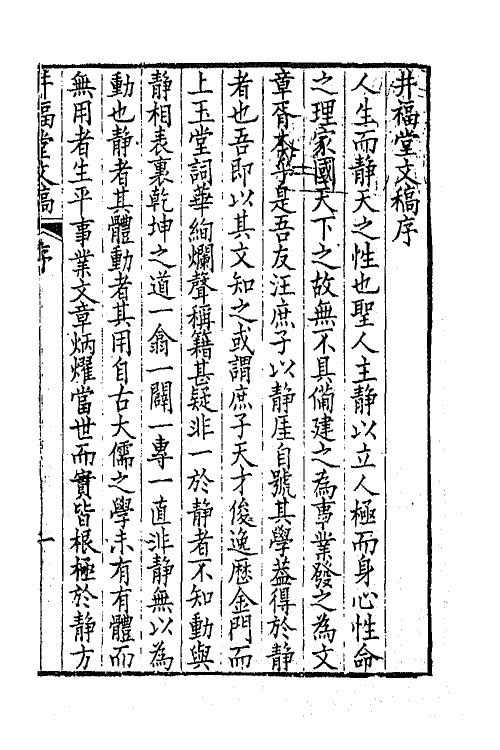 井福堂文稿序
人生而静天之性也聖人主静以立人極而身心性命
之理家國天下之故無不具備建之為事業發之為文
章胥本乎是吾友汪庶子以静厓自號其學葢得於静
者也吾即以其文知之或謂庶子天才俊逸歴金門而
上玉堂詞華絢爛聲稱籍甚疑非一於静者不知動與
静相表裏乾坤之道一翕一闢一專一直非静無以為
動也静者其體動者其用自古大儒之學未有有體而
無用者生平事業文章炳燿當世而實皆根極於静方
井福堂文稿 序 一